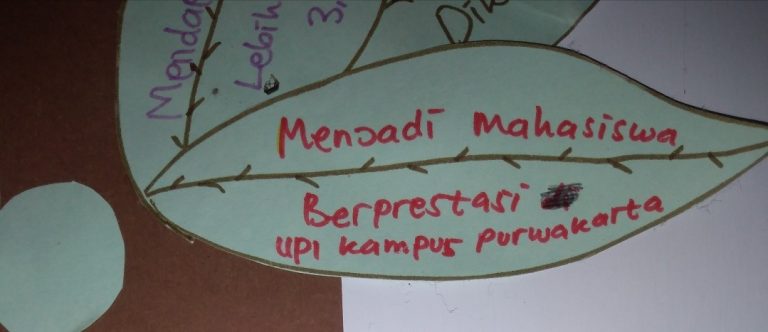 Mendap
Lebih
3,
Dik
Menjadi Mahasiswa
Berprestasi
UPI kampus purwakarta